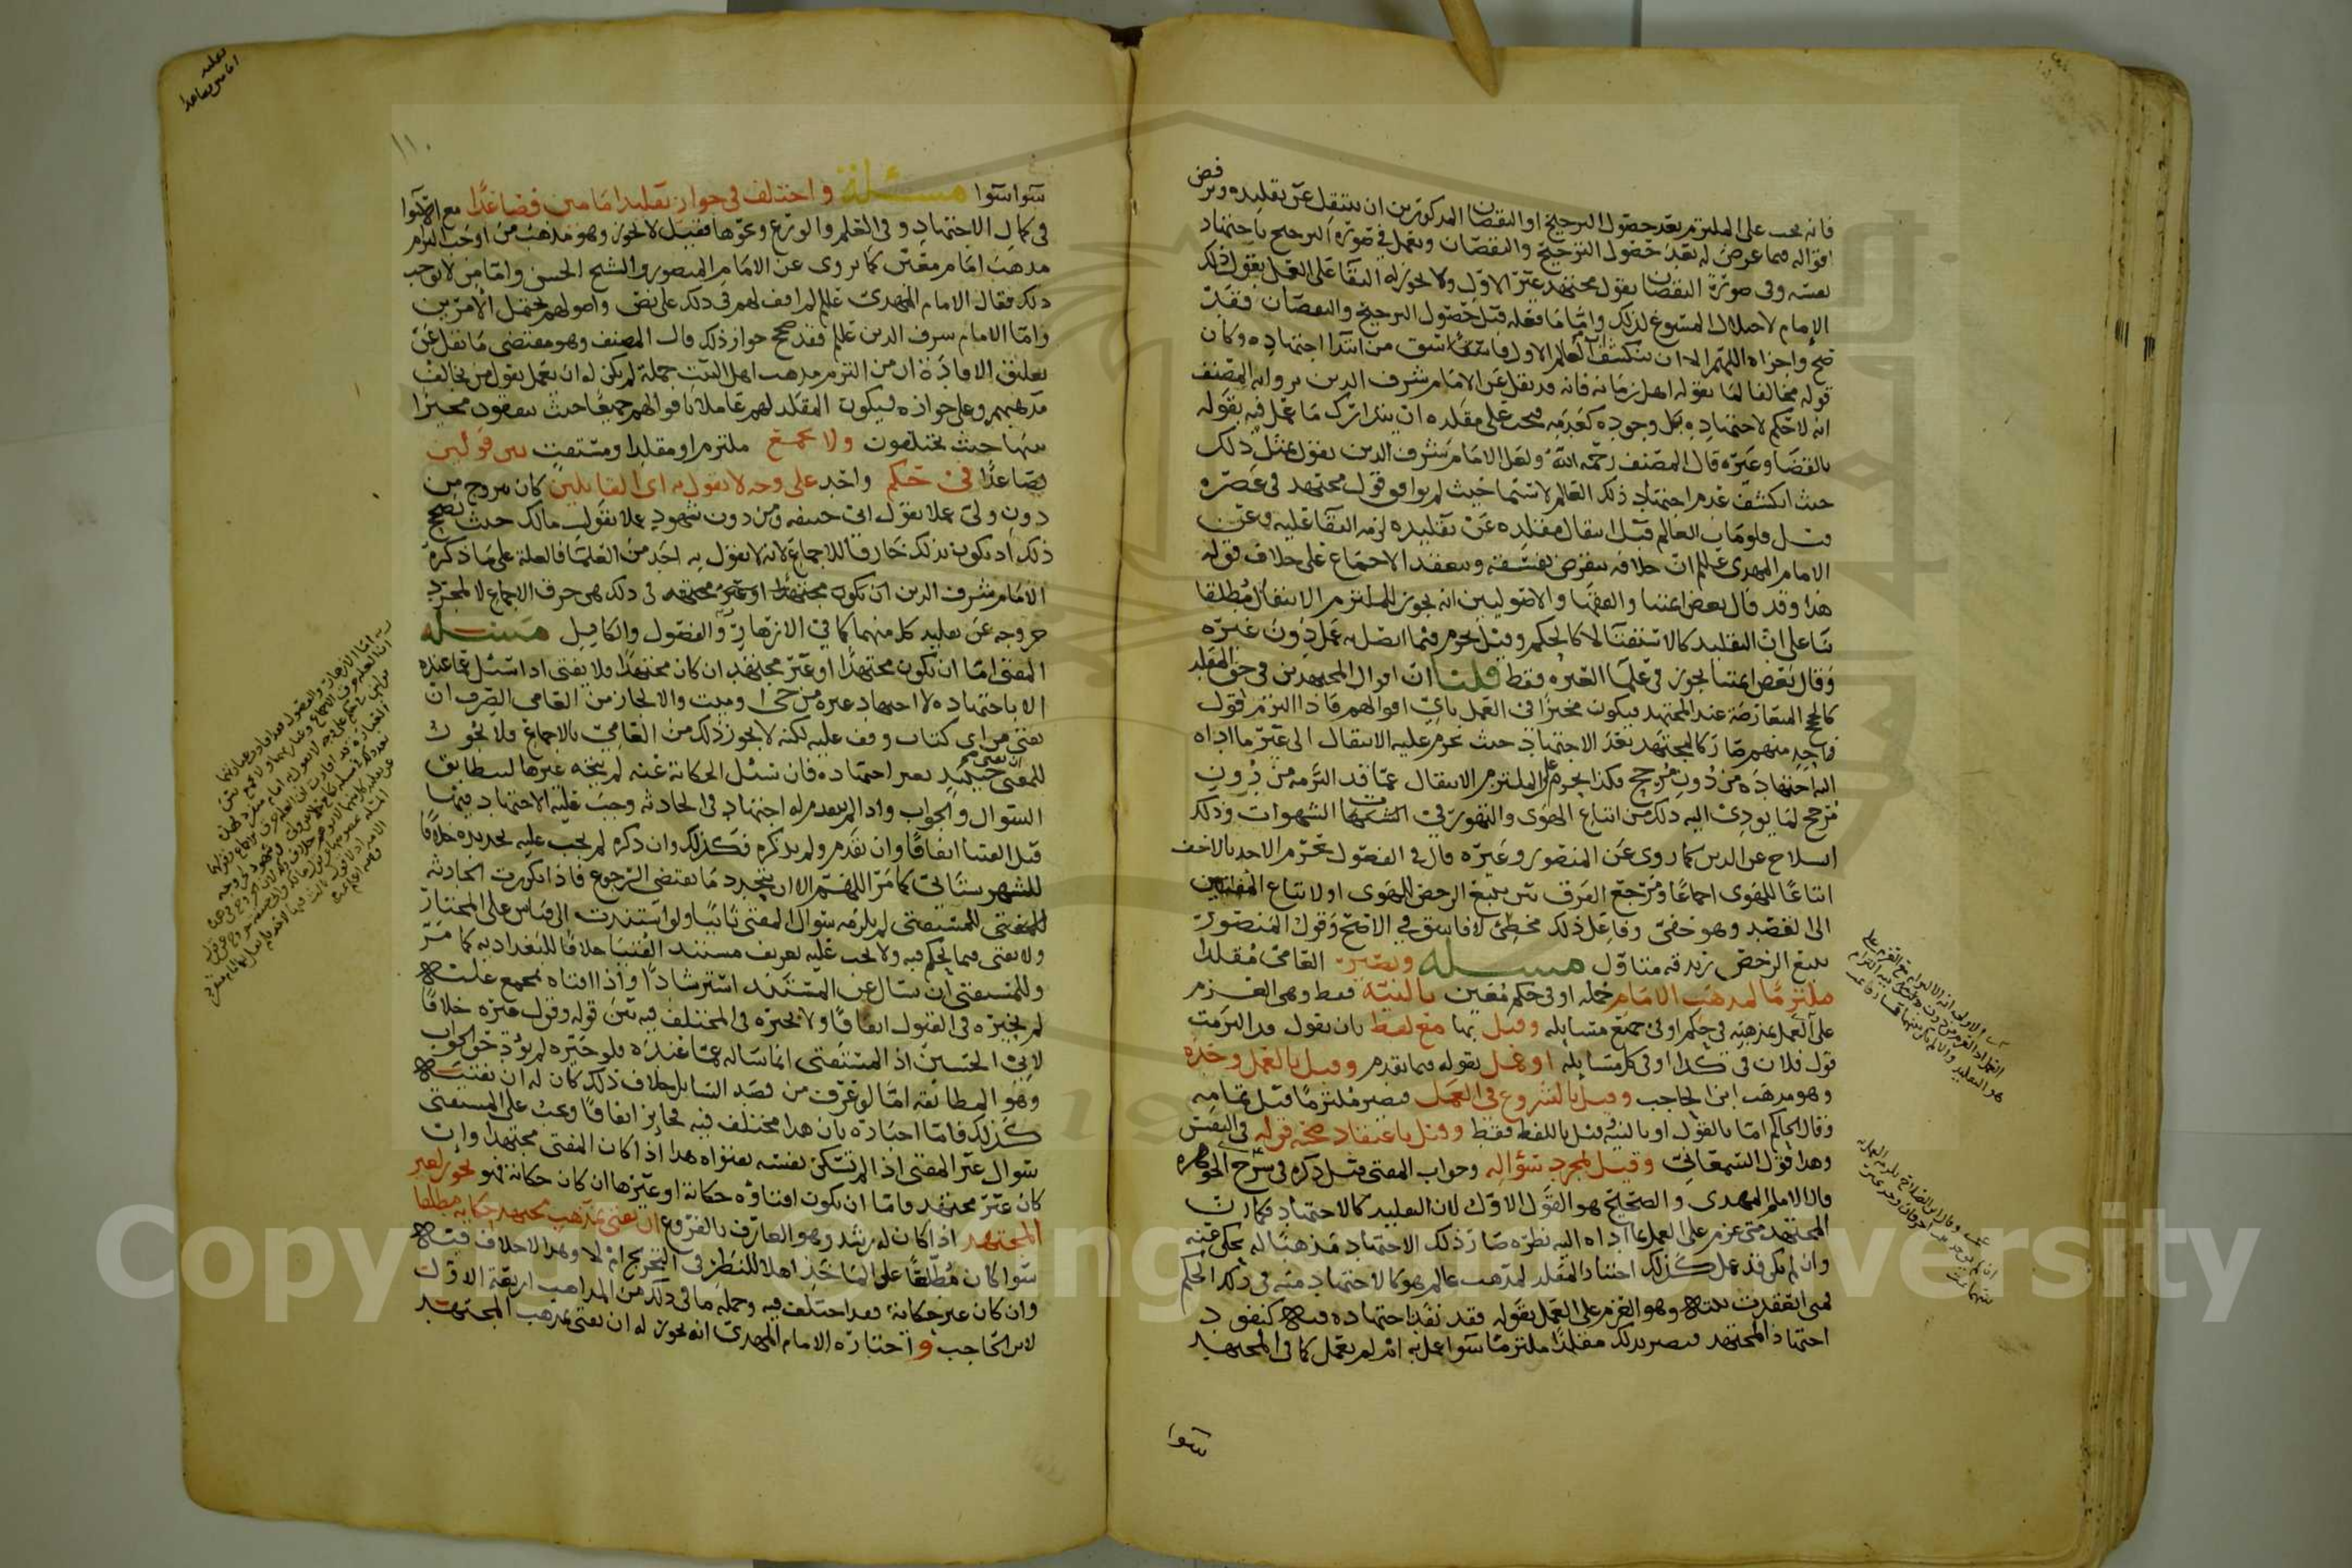 فانه يجب على الملتزم بعد حصول الترجيح او النقصان المذكورين ان ينتقل عن تقليده ويرفض
اقواله فيما عرض له بعد حصول الترجيح والنقصان ويعمل في صورة الترجيح باجتهاد
نفسه وفي صورة النقصان بقول مجتهد غير الاول ولا يجوز له البقا على العمل بقول ذلك
الامام لاختلال المسوغ لذلك واما ما فعله قبل حصول الترجيح والنقصان فقد
صح واجزاه اللهم الا ان ينكشف ان العالم الاول فاسق من ابتدا اجتهاده وكان
قوله مخالفا لما يقوله اهل زمانه فانه قد نقل عن الامام شرف الدين برواية المصنف
انه لا حكم لاجتهاده بل وجوده كعدمه فيجب على مقلده ان يتدارك ما عمل فيه بقوله
بالقضا وغيره قال المصنف رحمه الله ولعل الامام شرف الدين يقول بمثل ذلك
حيث انكشف عدم اجتهاد ذلك العالم لا سيما حيث لم يوافق قول مجتهد في عصره
قيل فلو مات العالم قبل انتقال مقلده عن تقليده لزمه البقا عليه وعن
الامام المهدي علم ان خلافه ينقرض بفسقه وينعقد الاجماع على خلاف قوله
هذا وقد قال بعض ائمتنا والفقها والاصوليين انه يجوز للملتزم الانتقال مطلقا
بنا على ان التقليد كالاستفتا لا كالحكم وقيل يحرم فيما اتصل به عمل دون غيره
وقال بعض ائمتنا يجوز في علما العترة فقط قلنا ان اقوال المجتهدين في حق المقلد
كالحجج المتعارضة عند المجتهد فيكون مخيرا في العمل باي اقوالهم فاذا التزم قول
واحد منهم صار كالمجتهد بعد الاجتهاد حيث يحرم عليه الانتقال الى غير ما اداه
اليه اجتهاده من دون مرجح فكذا يحرم على الملتزم الانتقال عما قد التزمه من دون
مرجح لما يودي اليه ذلك من اتباع الهوى والتهور في الشهوات وذلك
انسلاخ عن الدين كما روي عن المنصور وغيره قال في الفصول يحرم الاخذ بالاخف
اتباعا للهوى اجماعا ومرجع الفرق بين تتبع الرخص للهوى او لاتباع المفتين
الى القصد وهو خفي وفاعل ذلك مخطئ لا فاسق في الاصح وقول المنصور
تتبع الرخص زندقة متاول مسئلة ويصير العامي مقلدا
ملتزما لمذهب الامام جملة او في حكم معين بالنية فقط وهي العزم
على العمل بمذهبه في حكم او في جميع مسايله وقيل بها مع لفظ بان يقول قد التزمت
قول فلان في كذا او في كل مسايله او عمل بقوله فيما تقدم وقيل بالعمل وحده
وهو مذهب ابن الحاجب وقيل بالشروع في العمل فيصير ملتزما قبل تمامه
وقال الحاكم اما بالقول او بالنية وقيل باللفظ فقط وقيل باعتقاد صحة قوله في النفس
وهذا قول السمعاني وقيل بمجرد سؤاله وجواب المفتي قيل ذكره في شرح الجوهرة
قال الامام المهدي والصحيح هو القول الاول لان التقليد كالاجتهاد فكما ان
المجتهد متى عزم على العمل بما اداه اليه نظره صار ذلك الاجتهاد مذهبا له يحكى عنه
وان لم يكن قد عمل كذلك اختيار المقلد لمذهب عالم هو كالاجتهاد منه في ذلك الحكم
فمتى انعقدت نيته وهو العزم على العمل بقوله فقد نفذ اجتهاده فيه كنفوذ
اجتهاد المجتهد فيصير بذلك مقلدا ملتزما سوا عمل به ام لم يعمل كما في المجتهد
سوا
١١٠
سوا سوا مسئلة واختلف في جواز تقليد امامين فصاعدا مع استوا
في كمال الاجتهاد وفي العلم والورع ونحوها فقيل لا يجوز وهو مذهب من اوجب التزام
مذهب امام معين كما يروى عن الامام المنصور والشيخ الحسن واما من لا يوجب
ذلك فقال الامام المهدي علم لم اقف لهم في ذلك على نص واصولهم تحتمل الامرين
واما الامام شرف الدين علم فقد صحح جواز ذلك قال المصنف وهو مقتضى ما نقل عن
تعليق الافادة ان من التزم مذهب اهل البيت جملة لم يكن له ان يعمل بقول من يخالف
مذهبهم وعلى جوازه فيكون المقلد لهم عاملا باقوالهم جميعا حيث يتفقون مخيرا
بينها حيث يختلفون ولا يجمع ملتزم او مقلد او مستفت بين قولين
فصاعدا في حكم واحد على وجه لا يقول به اي القايلين كان يتزوج من
دون ولي عملا بقول ابي حنيفة ومن دون شهود عملا بقول مالك حيث يصح
ذلك اذ يكون بذلك خارقا للاجماع لانه لا يقول به احد من العلما فالعلة على ما ذكره
الامام شرف الدين ان يكون مجتهدا او غير مجتهد في ذلك هي خرق الاجماع لا لمجرد
خروجه عن تقليد كل منهما كما في الازهار والفصول والكافل مسئلة
المفتي اما ان يكون مجتهدا او غير مجتهد ان كان مجتهدا فلا يفتي اذا سئل عما عنده
الا باجتهاده لا اجتهاد غيره من حي وميت والا لجاز من العامي الصرف ان
يفتي من اي كتاب وقف عليه لكنه لا يجوز ذلك من العامي بالاجماع فلا يجوز
للمفتي ان يفتي حينئذ بغير اجتهاده فان سئل الحكاية عنه لم يتجه غيرها ليطابق
السوال والجواب واذا لم يتقدم له اجتهاد في الحادثة وجب عليه الاجتهاد فيها
قبل الفتيا اتفاقا وان تقدم ولم يذكره فكذلك وان ذكره لم يجب عليه تجديده خلافا
للشهرستاني كما مر اللهم الا ان يتجدد ما يقتضي الرجوع فاذا تكررت الحادثة
للمستفتي لم يلزمه سوال المفتي ثانيا ولو استندت الى قياس على المختار
ولا يفتي فيما يحكم فيه ولا يجب عليه تعريف مستند الفتيا خلافا للبغدادية كما مر
وللمستفتي ان يسال عن المستند استرشادا واذا افتاه بمجمع عليه
لم يخيره في القبول اتفاقا ولا يخيره في المختلف فيه بين قوله وقول غيره خلافا
لابي الحسين اذ المستفتي انما ساله عما عنده فلو خيره لم يؤد حق الجواب
وهو المطابقة اما لو عرف من قصد السايل خلاف ذلك كان له ان يفتيه
كذلك فاما اخباره بان هذا مختلف فيه فجايز اتفاقا ويجب على المستفتي
سوال غير المفتي اذا لم تسكن نفسه بفتواه هذا اذا كان المفتي مجتهدا وان
كان غير مجتهد فاما ان يكون افتاؤه حكاية او غيرها ان كان حكاية فهو يجوز لغير
المجتهد اذا كان له رشد وهو العارف بالفروع ان يفتي بمذهب مجتهد حكاية مطلقا
سوا كان مطلعا على الماخذ اهلا للنظر في الترجيح ام لا وهذا لا خلاف فيه
وان كان غير حكاية فقد اختلف فيه وجملة ما في ذلك من المذاهب اربعة الاول
لابن الحاجب واختاره الامام المهدي انه يجوز له ان يفتي بمذهب المجتهد
Copy King University